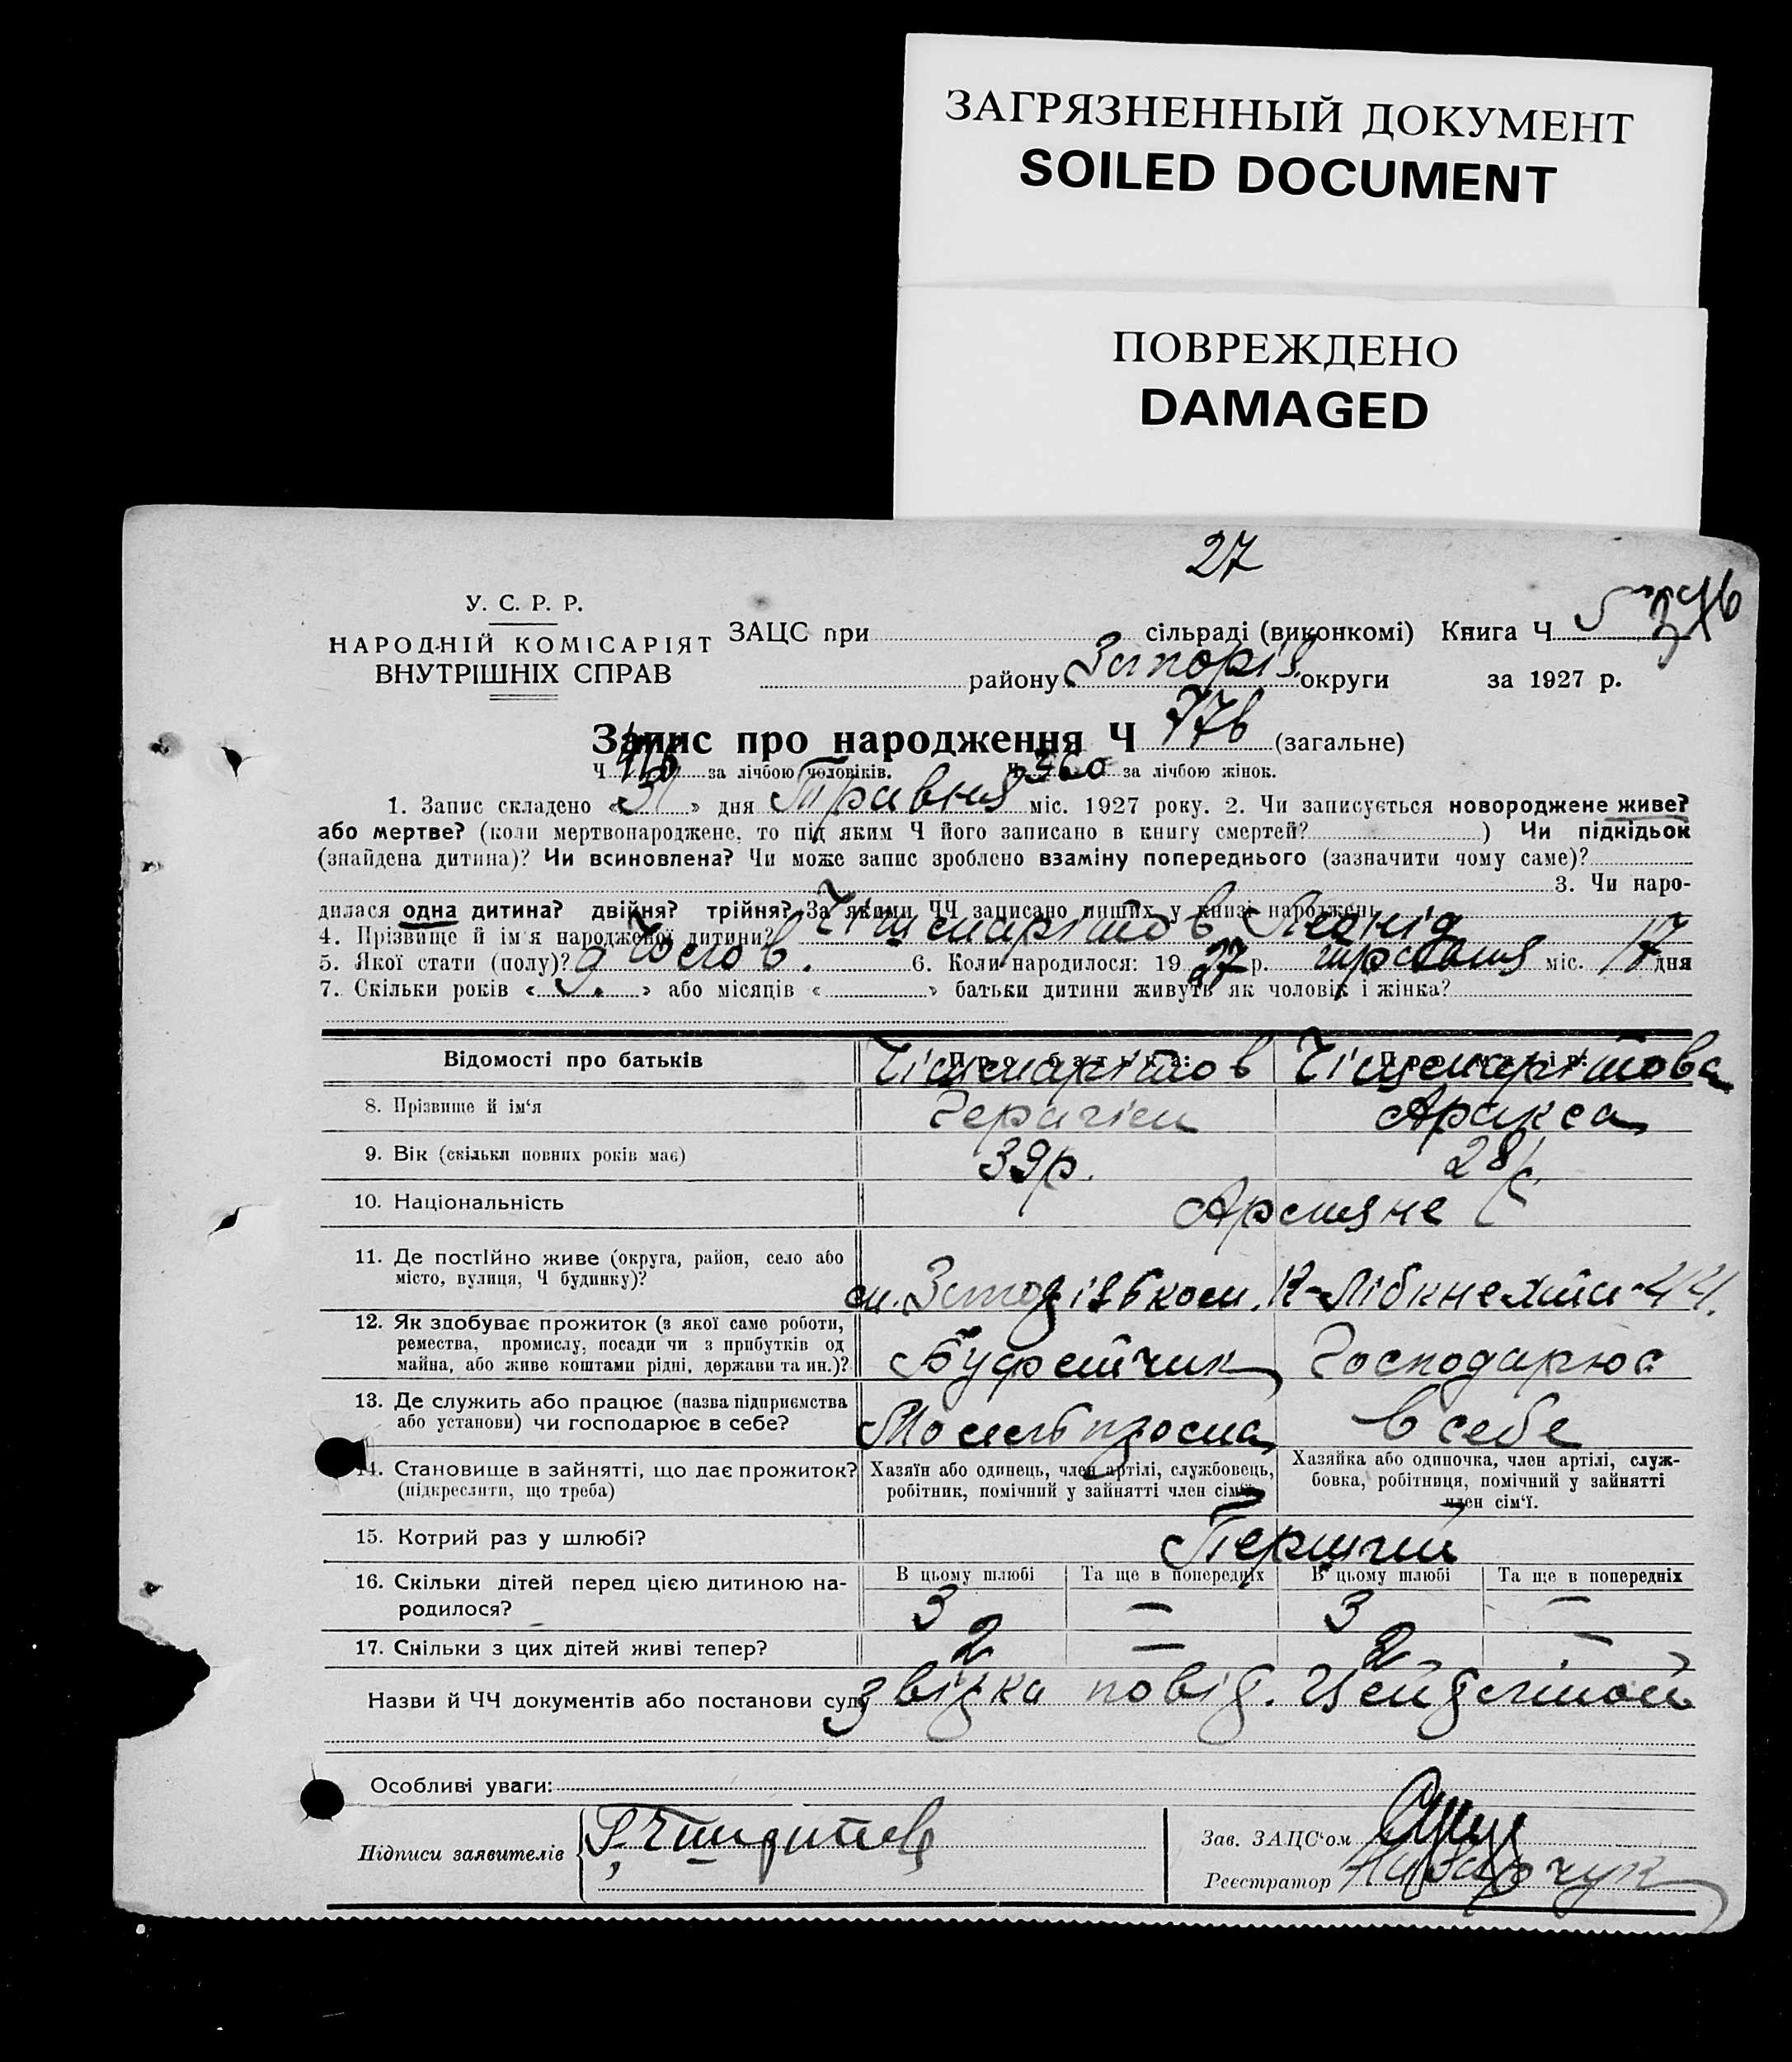 ЗАГРЯЗНЕННЫЙ ДОКУМЕНТ
SOILED DOCUMENT
ПОВРЕЖДЕНО
DAMAGED
27
У. С. Р. Р.
НАРОДНІЙ КОМІСАРІЯТ
ВНУТРІШНІХ СПРАВ
ЗАЦС при сільраді (виконкомі) Книга Ч 5
району Запоріз. округи за 1927 р.
Запис про народження Ч 776 (загальне)
Ч 416 за лічбою чоловіків. Ч 360 за лічбою жінок.
1. Запис складено «31» дня Травня міс. 1927 року. 2. Чи записується новороджене живе?
або мертве? (коли мертвонароджене, то під яким Ч його записано в книгу смертей? ) Чи підкідьок
(знайдена дитина)? Чи всиновлена? Чи може запис зроблено взаміну попереднього (зазначити чому саме)?
3. Чи наро-
дилася одна дитина? двійня? трійня? За якими ЧЧ записано инших у книзі народжень
4. Прізвище й ім'я народженої дитини? Леонід
5. Якої стати (полу)? Чолов. 6. Коли народилося: 19 27 р. травня міс. 17 дня
7. Скільки років « 9. » або місяців « » батьки дитини живуть як чоловік і жінка?
Відомості про батьків Про батька: Про матір:
8. Прізвище й ім'я Аракса
9. Вік (скільки повних років має) 39р. 28р.
10. Національність Армяне
11. Де постійно живе (округа, район, село або
місто, вулиця, Ч будинку)? К-Лібкнехта-44.
12. Як здобуває прожиток (з якої саме роботи,
ремества, промислу, посади чи з прибутків од
майна, або живе коштами рідні, держави та ин.)? Буфетчик Господарює
13. Де служить або працює (назва підприємства
або установи) чи господарює в себе? в себе
14. Становище в зайнятті, що дає прожиток?
(підкреслити, що треба)
Хазяїн або одинець, член артілі, службовець,
робітник, помічний у зайнятті член сім'ї.
Хазяйка або одиночка, член артілі, служ-
бовка, робітниця, помічний у зайнятті
член сім'ї.
15. Котрий раз у шлюбі? Перший
16. Скільки дітей перед цією дитиною на-
родилося?
В цьому шлюбі Та ще в попередніх В цьому шлюбі Та ще в попередніх
3 — 3 —
17. Скільки з цих дітей живі тепер? 2 — 2 —
Назви й ЧЧ документів або постанови суду
Особливі уваги:
Підписи заявителів
Зав. ЗАЦС'ом
Реєстратор